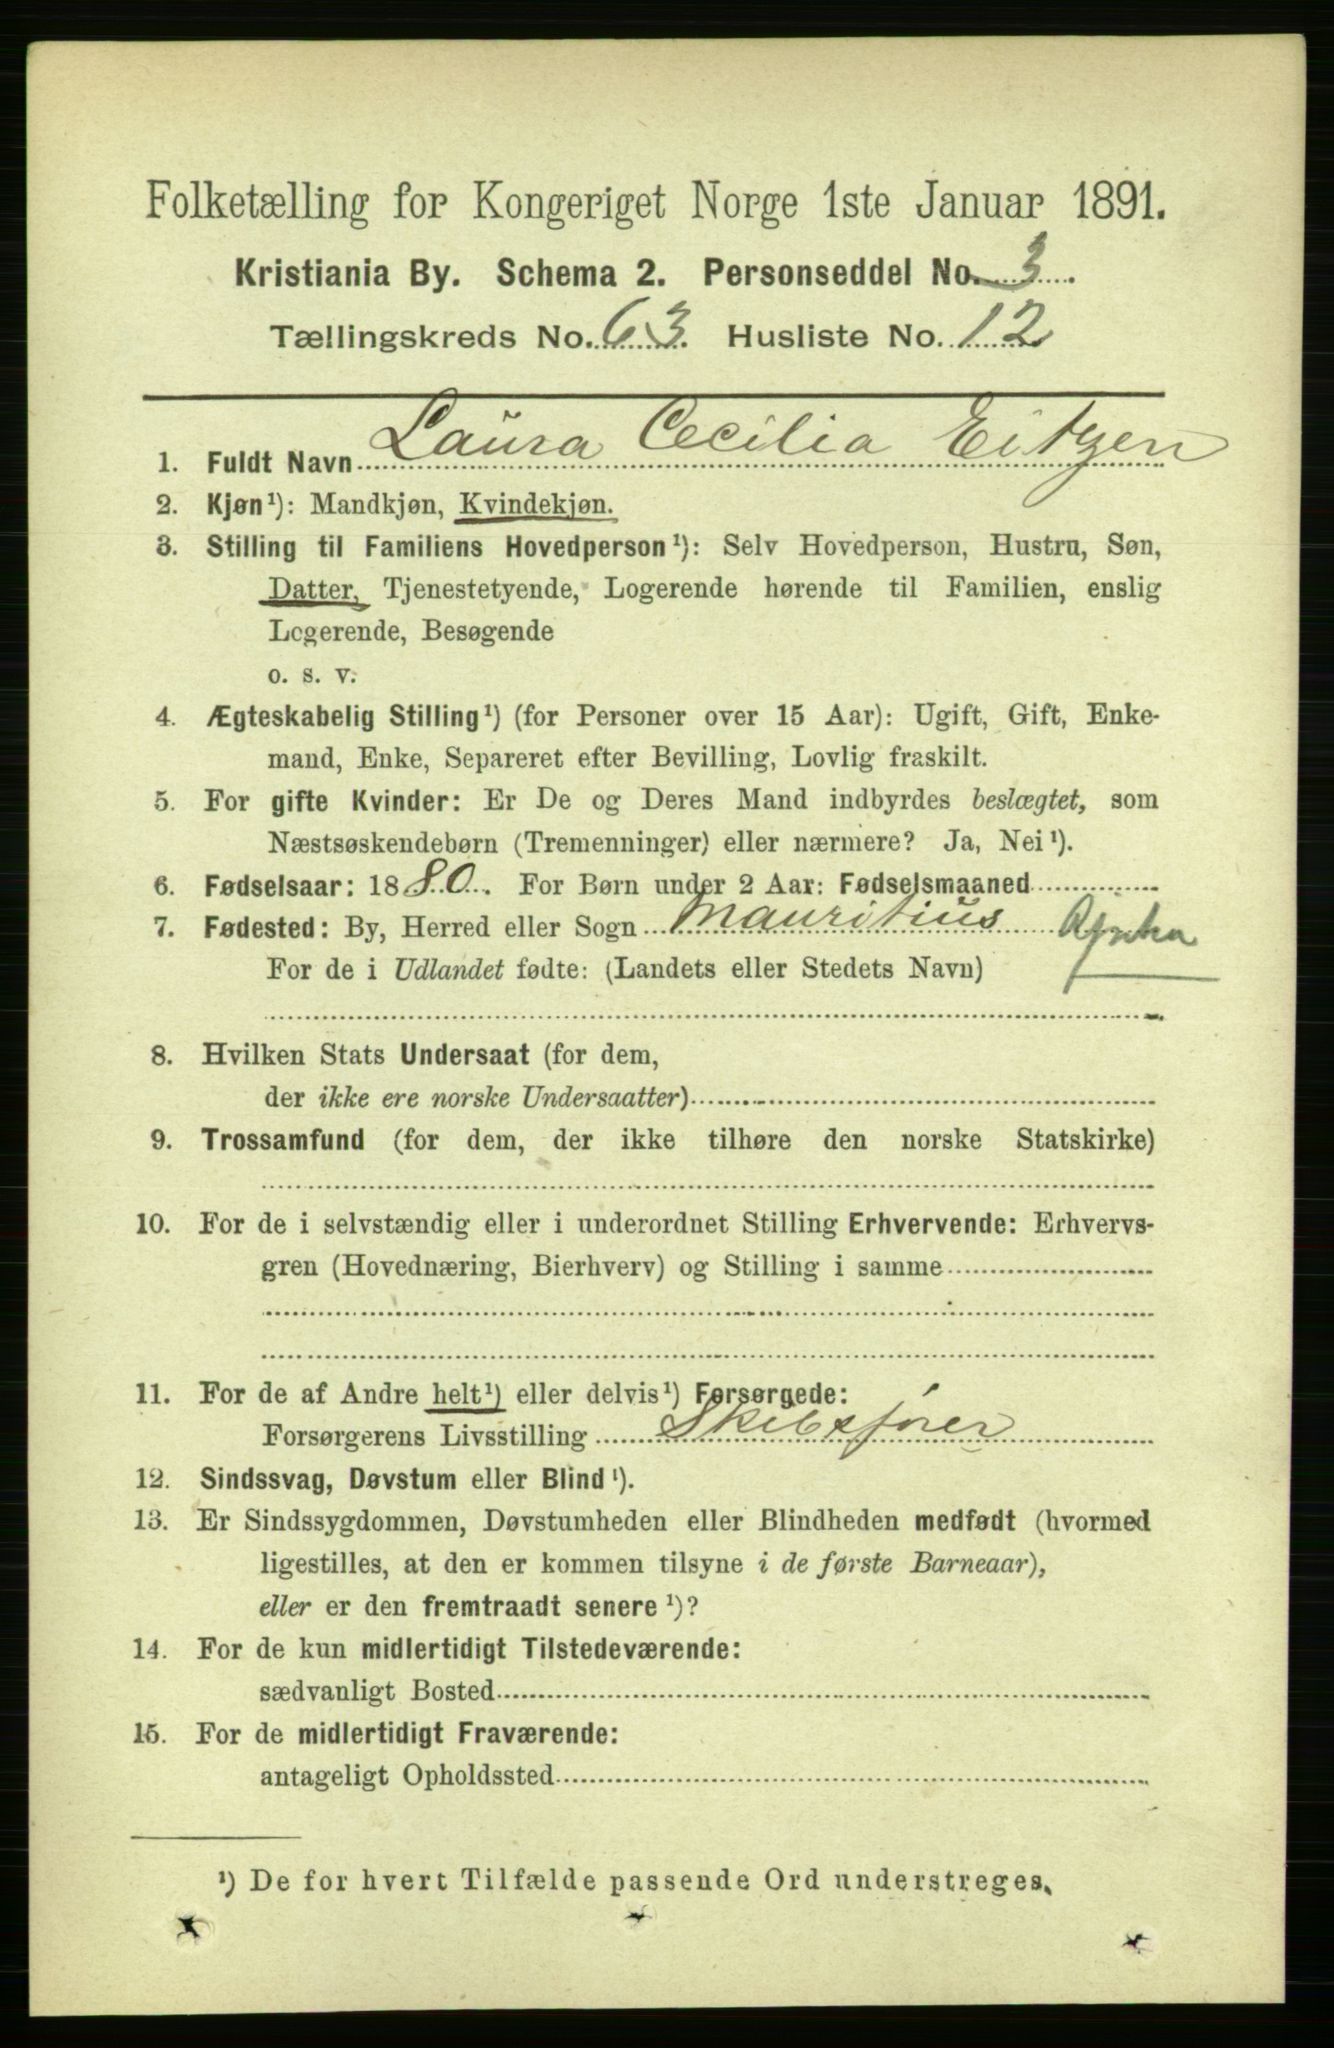 Folketælling for Kongeriget Norge 1ste Januar 1891.
Kristiania By. Schema 2. Personseddel No. 3.
Tællingskreds No. 63. Husliste No. 12
1. Fuldt Navn Laura Cecilia Eitzen
2. Kjøn¹): Mandkjøn, Kvindekjøn.
3. Stilling til Familiens Hovedperson¹): Selv Hovedperson, Hustru, Søn,
Datter, Tjenestetyende, Logerende hørende til Familien, enslig
Logerende, Besøgende
o. s. v.
4. Ægteskabelig Stilling¹) (for Personer over 15 Aar): Ugift, Gift, Enke-
mand, Enke, Separeret efter Bevilling, Lovlig fraskilt.
5. For gifte Kvinder: Er De og Deres Mand indbyrdes beslægtet, som
Næstsøskendebørn (Tremenninger) eller nærmere? Ja, Nei¹).
6. Fødselsaar: 1880. For Børn under 2 Aar: Fødselsmaaned
7. Fødested: By, Herred eller Sogn Mauritius
For de i Udlandet fødte: (Landets eller Stedets Navn)
8. Hvilken Stats Undersaat (for dem,
der ikke ere norske Undersaatter)
9. Trossamfund (for dem, der ikke tilhøre den norske Statskirke)
10. For de i selvstændig eller i underordnet Stilling Erhvervende: Erhvervs-
gren (Hovednæring, Bierhverv) og Stilling i samme
11. For de af Andre helt¹) eller delvis¹) Forsørgede:
Forsørgerens Livsstilling Skibsfører
12. Sindssvag, Døvstum eller Blind¹).
13. Er Sindssygdommen, Døvstumheden eller Blindheden medfødt (hvormed
ligestilles, at den er kommen tilsyne i de første Barneaar),
eller er den fremtraadt senere¹)?
14. For de kun midlertidigt Tilstedeværende:
sædvanligt Bosted
15. For de midlertidigt Fraværende:
antageligt Opholdssted
¹) De for hvert Tilfælde passende Ord understreges.